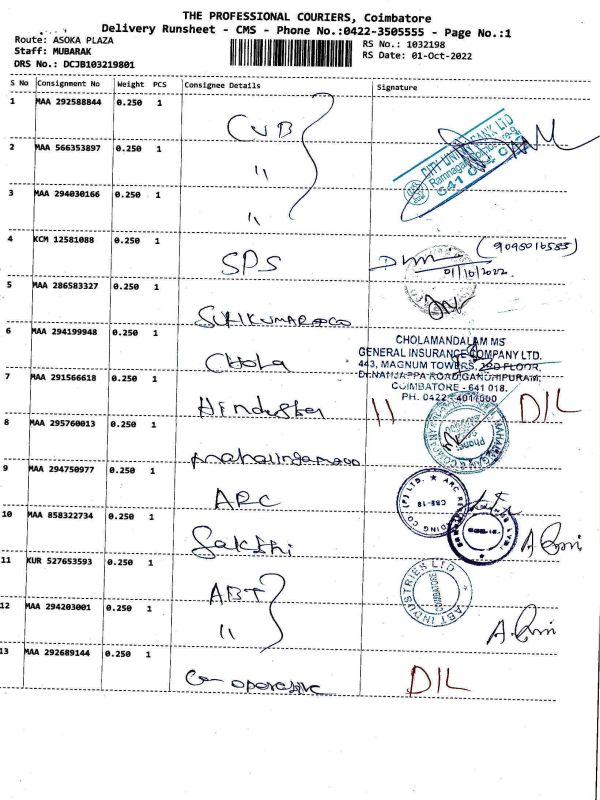 THE PROFESSIONAL COURIERS, Coimbatore
Delivery Runsheet - CMS - Phone No.:0422-3505555 - Page No.:1
Route: ASOKA PLAZA
RS No.: 1032198
Staff: MUBARAK
RS Date: 01-Oct-2022
DRS No.: DCJB103219801
S No Consignment No Weight PCS Consignee Details Signature
1 MAA 292588844 0.250 1 CUB
CITY UNION BANK LTD
2 MAA 566353897 0.250 1 "
641
3 MAA 294030166 0.250 1 "
4 KCM 12581088 0.250 1 SPS
01/10/2022
5 MAA 286583327 0.250 1
6 MAA 294199948 0.250 1 CHOLA
CHOLAMANDALAM MS
GENERAL INSURANCE COMPANY LTD.
443, MAGNUM TOWERS, 2ND FLOOR,
DR.NANJAPPA ROAD, GANDHIPURAM,
COIMBATORE - 641 018.
PH. 0422
7 MAA 291566618 0.250 1
DIL
8 MAA 295760013 0.250 1
9 MAA 294750977 0.250 1 ARC
CBE-18
10 MAA 858322734 0.250 1 Sakshi
11 KUR 527653593 0.250 1 ABT
ABT INDUSTRIES LTD
COIMBATORE
12 MAA 294203001 0.250 1 "
13 MAA 292689144 0.250 1 Co-operative
DIL